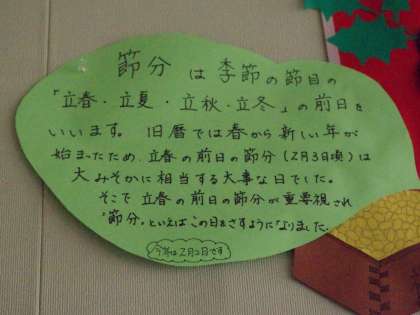 節分は季節の節目の
「立春・立夏・立秋・立冬」の前日を
いいます。旧暦では春から新しい年が
始まったため、立春の前日の節分(2月3日頃)は
大みそかに相当する大事な日でした。
そこで立春の前日の節分が重要視され
"節分"といえばこの日をさすようになりました。
今年は2月2日です